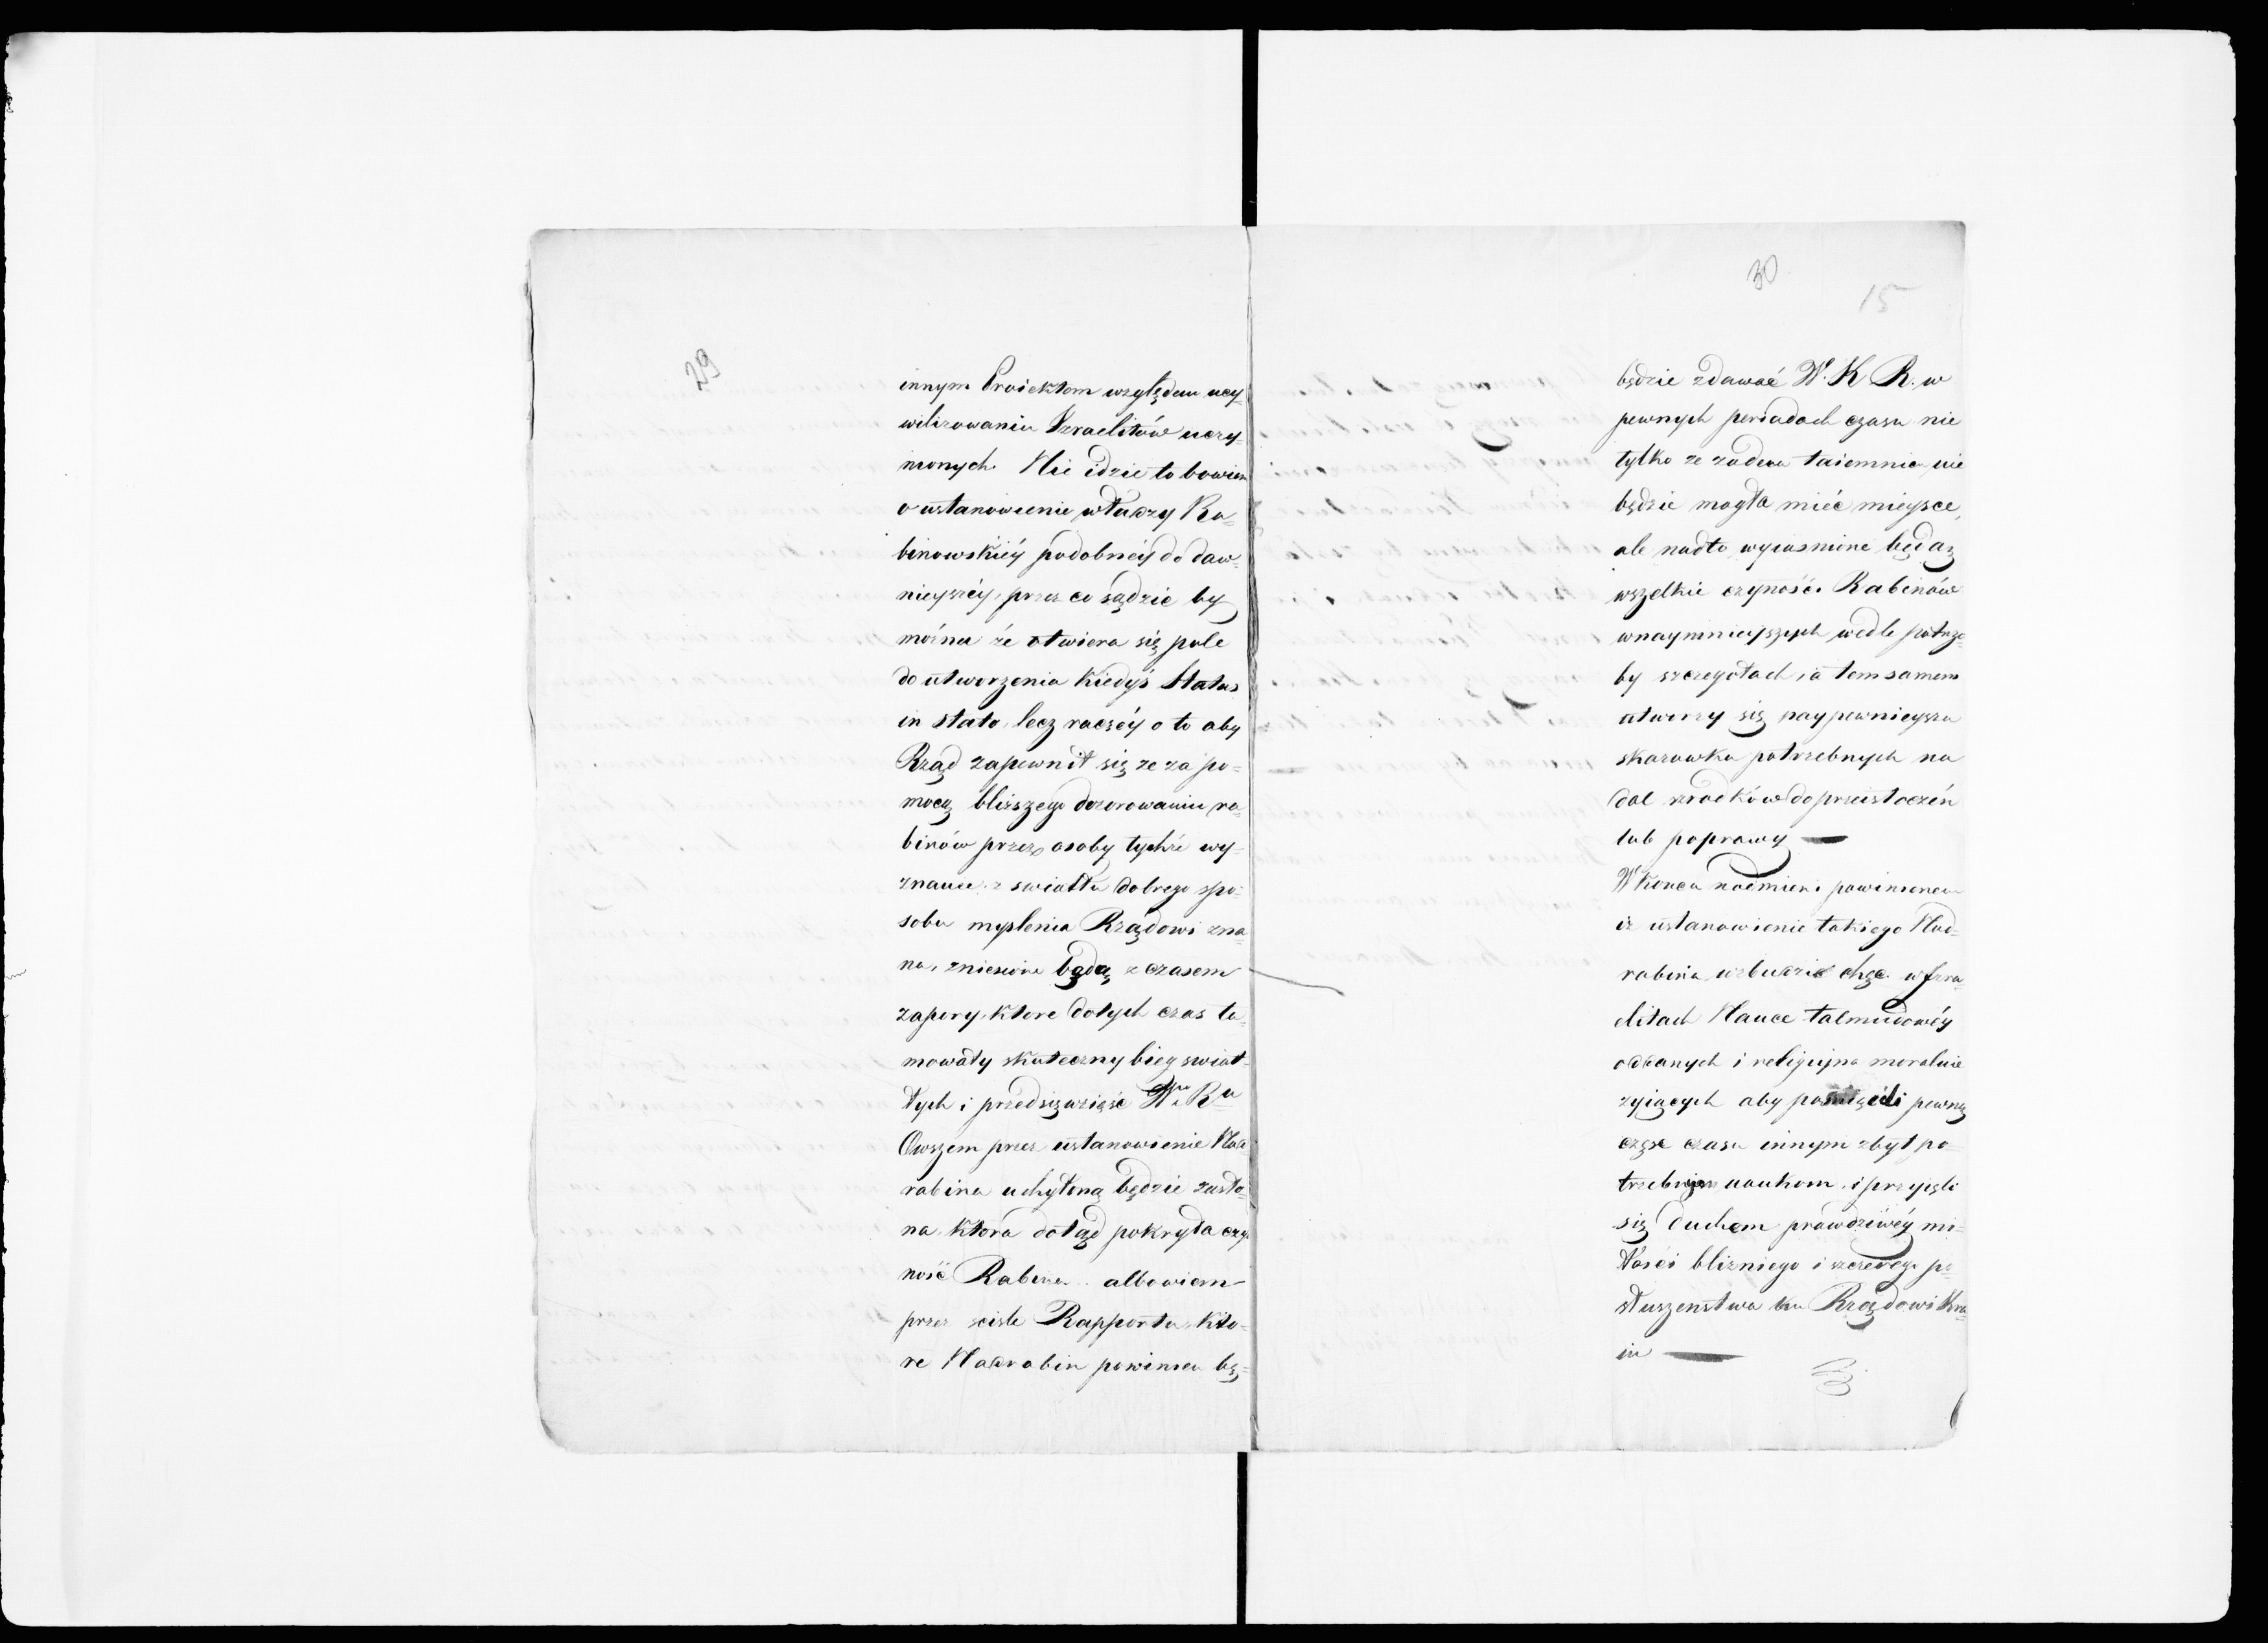 29
innym Proiektom względem ucy-
wilizowania Izraelitów uczy-
nionych. Nie idzie to bowiem
o ustanowienie władzy Ra-
binowskiéy podobnéy do daw-
nieyszéy, przez co sądzić by
można że otwiera się pole
do utworzenia kiedyś Status
in stato, lecz raczéy o to aby
Rząd zapewnił się ze za po-
mocą bliższego dozorowania ra-
binów przez osoby tychże wy-
znania z swiatła dobrego spo-
sobu myslenia Rządowi zna-
na, zniesione będą z czasem
zapory, ktore dotych czas ta-
mowały skuteczny bieg swiat-
łych i przedsięwzięść Wgo Ru
Owszem przez ustanowienie Nad
rabina uchyloną będzie zasło-
na, ktora dotąd pokryła czy-
ność Rabina albowiem
przez scisłe Rapporta, kto-
re Nadrabin powinien bę-
30
15
będzie zdawać W. K. R. w
pewnych periodach czasu nie
tylko ze żadna taiemnica nie
będzie mogła mieć mieysce,
ale nadto wyiasnione będą
wszelkie czynośći Rabinów
w naymnieyszych wedle potrze-
by szczegołach, a tem samem
utworzy się naypewnieysza
skazowka potrzebnych na
dal srodków do przeistoczeń
lub poprawy —
W Koncu nadmienić powinienem
iz ustanowienie takiego Nad-
rabina wzbudzić chęć w Izra-
elitach Nauce talmudowéy
oddanych i religijno moralnie
zyiących aby poswięcili pewną
częsc czasu innym zbyt po-
trzebnym naukom, i przyięli
się duchem prawdziwéy mi-
łości blizniego i szczerego po-
słuszenstwa ku Rządowi Kra-
iu —